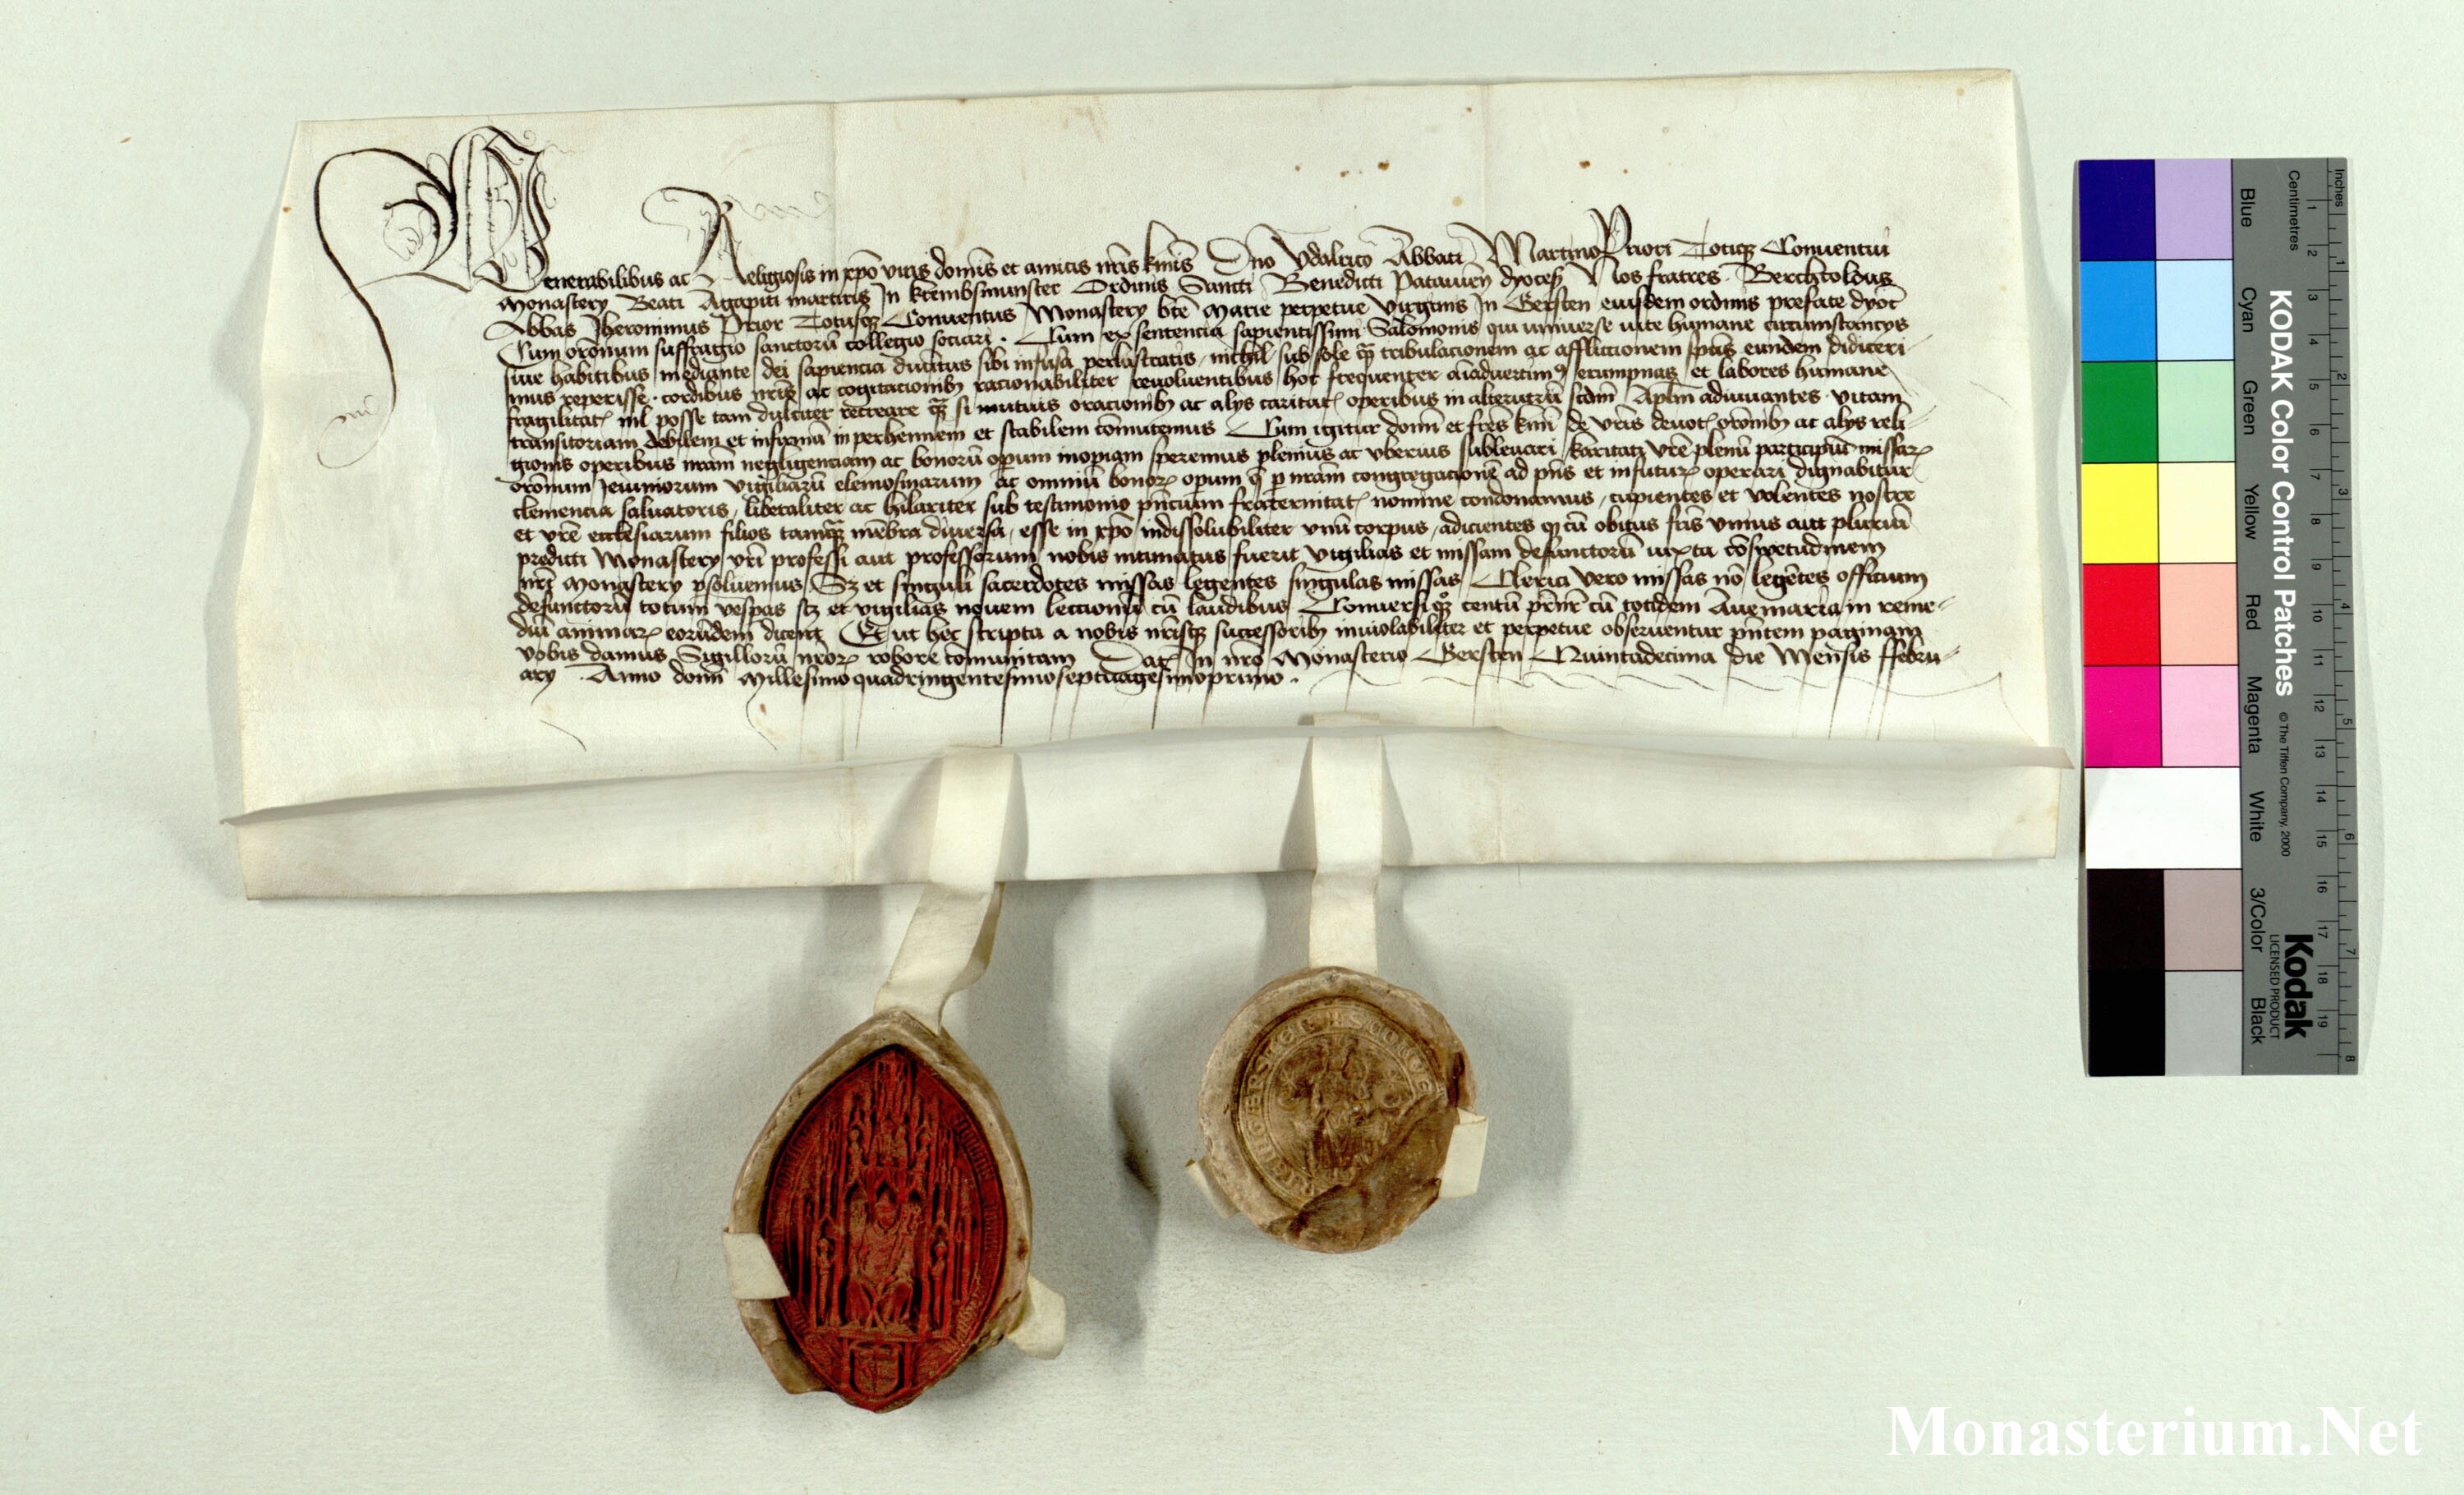 Venerabilibus ac Religiosis in xpo viris domis et amicis nris kmis Dno Vdalrico Abbati Martino Priori Totiqz Conuentui
Monastery Beati Agapiti martiris In krembsmunster Ordinis Sancti Benedicti Patauien dyoces Nos fratres Berchtoldus
Abbas Jheronimus Prior Totusqz Conuentus Monastery bte Marie perpetue virginis In Gersten eiusdem ordinis prefate dyoc
Cum oronum suffragio sanctorū collegio sociari . Cum ex sentencia sapientissimi Salomonis qui vniuerse vite humane circumstancys
siue habitibus mediante dei sapiencia diuinitus sibi infusa perlustratis nichil sub sole qz tribulacionem ac afflictionem spūs eundem didiceri
mus reperisse . cordibus nris ac cogitacionibz racionabiliter reuoluentibus hoc frequenter aīaduertim9 erumpnas et labores humane
fragilitat nil posse tam dulciter recreare qz si mutuis oracionibz ac alys caritat operibus in alterutrū scdm Aplm adiuuantes vitam
transitoriam debilem et infirmā in perhennem et stabilem comutemus Cum igitur domī et fres kmī de vris deuot oronibz ac alys reli
gionis operibus nram negligenciam ac bonorū operum inopiam speremus plenius ac vberius subleuari karitati vre plenū participiū missar
oronum Jeiuniorum vigiliarū elemosinarum ac omniū bonor opum q p nram congregacionē ad pns et in futur operari dignabitur
clemencia saluatoris liberaliter ac hilariter sub testimonio pncium fraternitat nomine condonamus cupientes et volentes nostre
et vre ecclesiarum filios tamqz mēbra diuersa esse in xpo indissolubiliter vnū corpus adicientes q cū obitus fris vnius aut pluriū
predicti Monastery vri professi aut professorum nobis intimatus fuerit vigilias et missam defunctorū iuxta cōswetudinem
nri Monastery psoluemus Sz et singuli sacerdotes missas legentes singulas missas Clerici vero missas nō legētes officium
defunctorū totum vespas scz et vigilias nouem leccionū cū laudibus Conuersiqz centū prnr cū totidem Aue maria in reme
diū animar eorūdem dicent Et ut hec scripta a nobis nrisqz successoribz inuiolabiliter et perpetue obseruentur pntem paginam
vobis damus Sigillorū nror robore comunitam Dat In nro Monasterio Gersten Quintadecima die Mensis ffebru
ary . Anno domī Millesimo quadringentesimo septuagesimoprimo .
KODAK Color Control Patches
© The Tiffen Company, 2000
Kodak
LICENSED PRODUCT
Inches
Centimetres
1 2 3 4 5 6 7 8 9 10 11 12 13 14 15 16 17 18 19
1 2 3 4 5 6 7 8
Blue
Cyan
Green
Yellow
Red
Magenta
White
3/Color
Black
Monasterium.Net